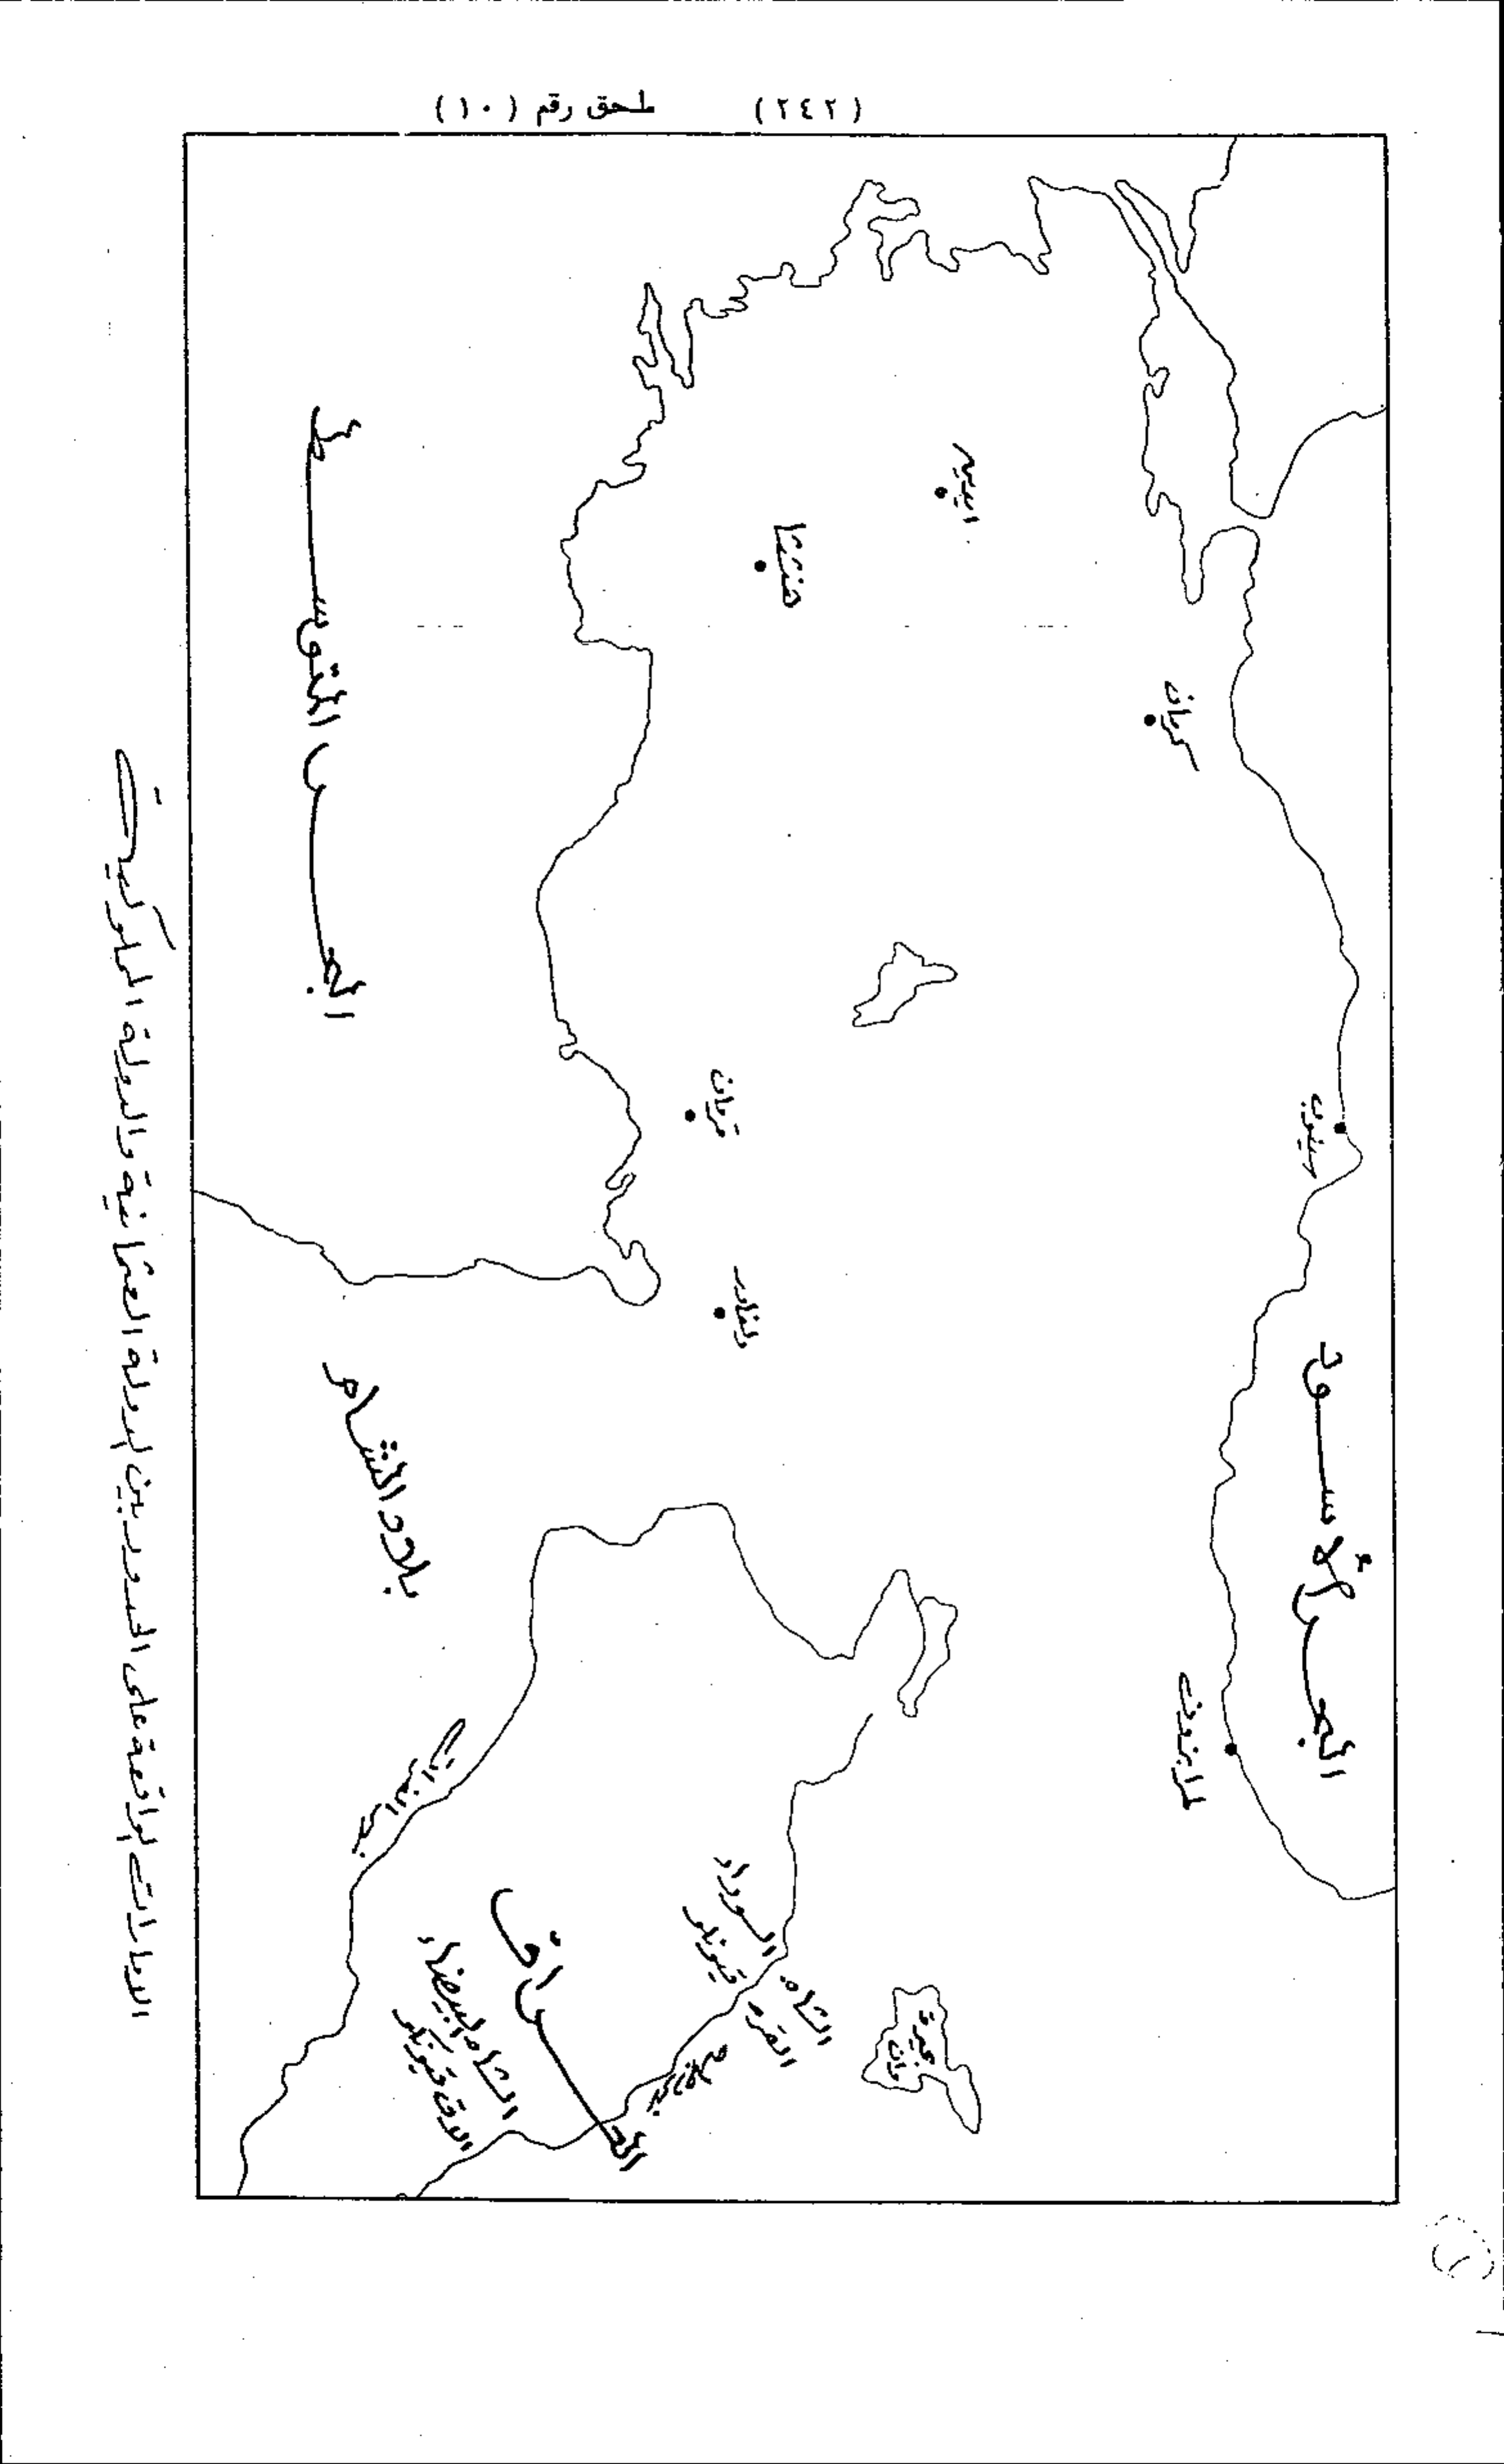 (٢٤٢)
ملحق رقم (١٠)
البحر الأسود
سينوب
طرابزون
كرمان
اييه
قرمان
دلغادر
بحيرة
وان
الشاه السوداء
القره قيونلو
نهر دجلة
العراق
الشاه البيضاء
الاق قيونلو
نهر الفرات
بلاد الشام
البحر المتوسط
الامارات الواقعة على الحدود بين الدولة العثمانية والدولة المملوكية